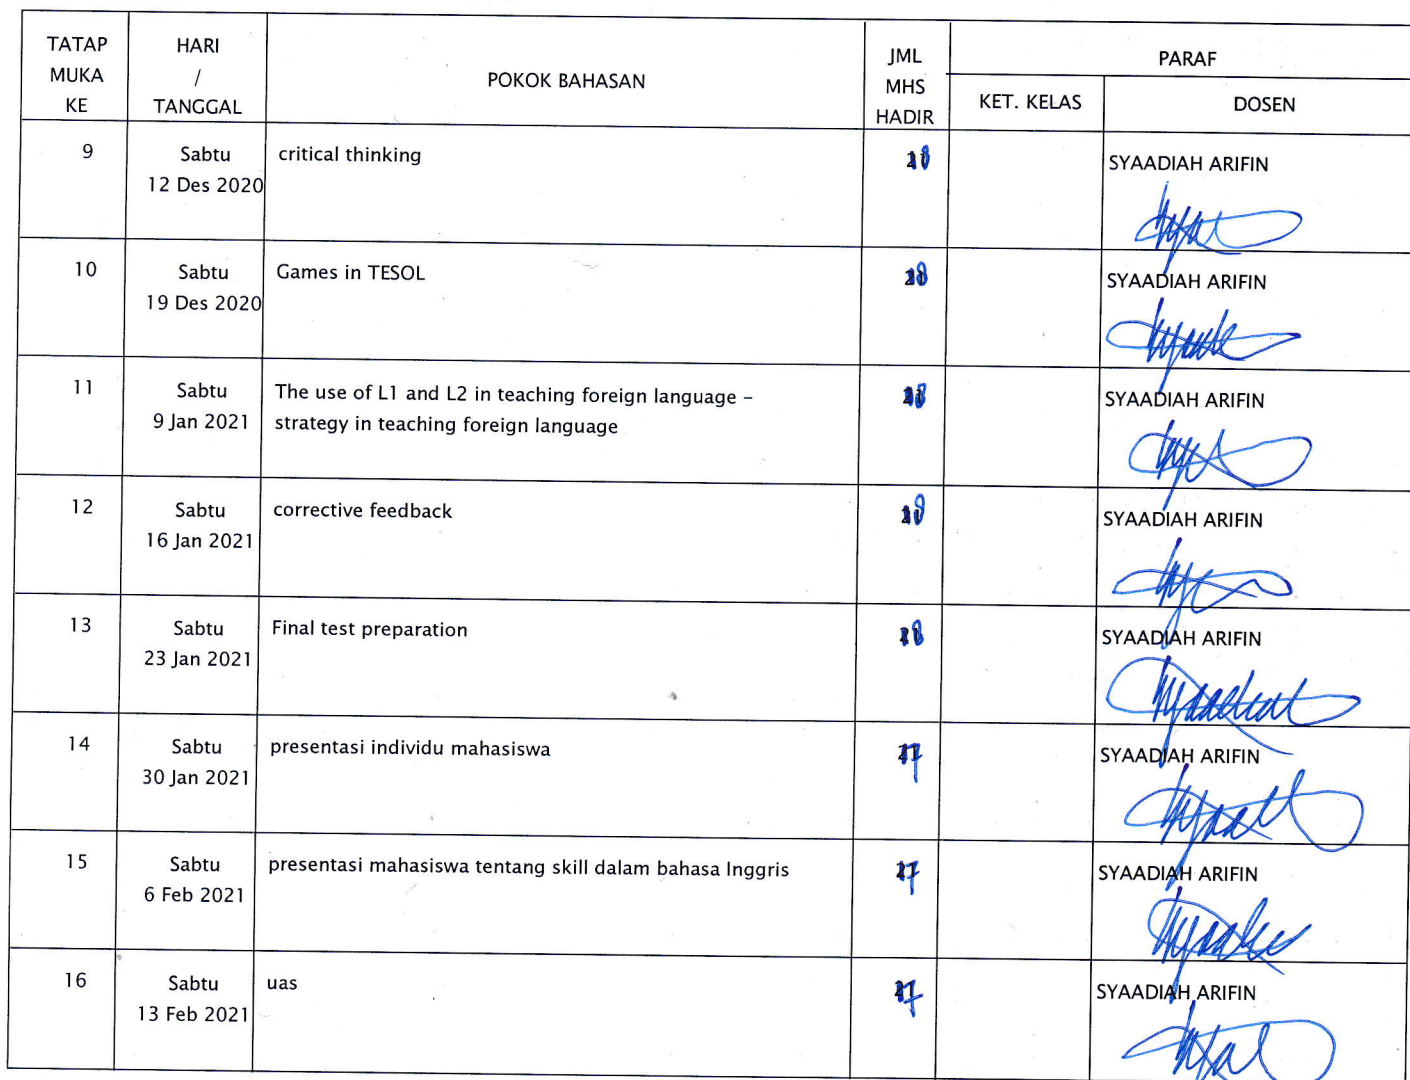 TATAP MUKA KE
HARI / TANGGAL
POKOK BAHASAN
JML MHS HADIR
PARAF
KET. KELAS
DOSEN
9
Sabtu
12 Des 2020
critical thinking
18
SYAADIAH ARIFIN
10
Sabtu
19 Des 2020
Games in TESOL
18
SYAADIAH ARIFIN
11
Sabtu
9 Jan 2021
The use of L1 and L2 in teaching foreign language –
strategy in teaching foreign language
18
SYAADIAH ARIFIN
12
Sabtu
16 Jan 2021
corrective feedback
18
SYAADIAH ARIFIN
13
Sabtu
23 Jan 2021
Final test preparation
18
SYAADIAH ARIFIN
14
Sabtu
30 Jan 2021
presentasi individu mahasiswa
17
SYAADIAH ARIFIN
15
Sabtu
6 Feb 2021
presentasi mahasiswa tentang skill dalam bahasa Inggris
17
SYAADIAH ARIFIN
16
Sabtu
13 Feb 2021
uas
17
SYAADIAH ARIFIN